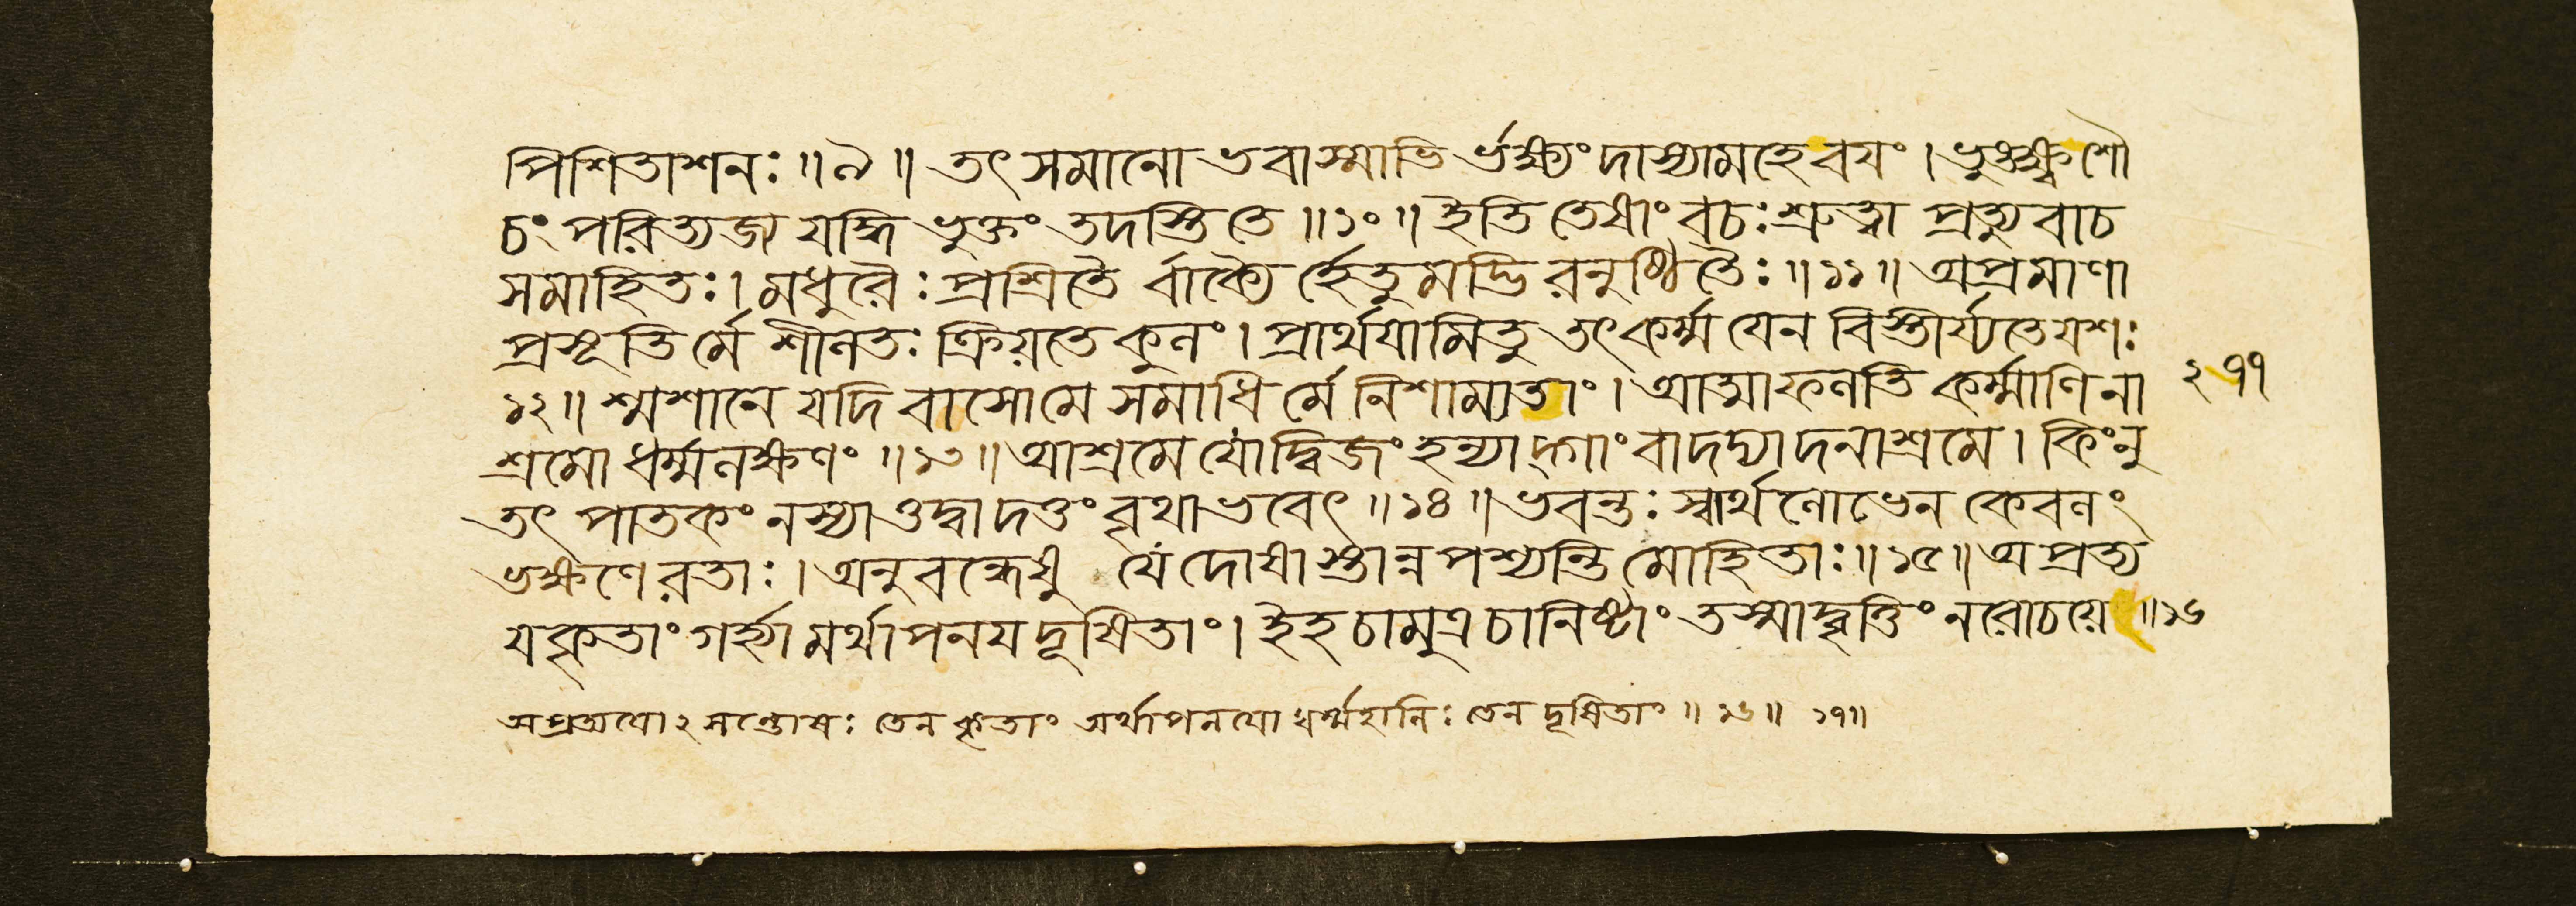 পিশিতাশনঃ ॥ ৯ ॥ তৎ সমানো ভবাস্মাভি র্ভক্ষ্যং দাস্যামহে বয়ং । ভুঙ্ক্ষ্ব শৌ
চং পরিত্যজ্য যদ্ধি ভুক্তং তদস্তি তে ॥ ১০ ॥ ইতি তেষাং বচঃ শ্রুত্বা প্রত্যুবাচ
সমাহিতঃ । মধুরৈঃ প্রশ্রিতৈ র্বাক্যৈ র্হেতুমদ্ভি রনুষ্ঠিতৈঃ ॥ ১১ ॥ অপ্রমাণা
প্রসূতি র্মে শীলতঃ ক্রিয়তে কুলং । প্রার্থয়ামি তু তৎ কর্ম্ম যেন বিস্তীর্য্যতে যশঃ
১২ ॥ শ্মশানে যদি বাসো মে সমাধি র্মে নিশাম্যতাং । আত্মা ফলতি কর্ম্মাণি না
শ্রমো ধর্ম্মলক্ষণং ॥ ১৩ ॥ আশ্রমে যো দ্বিজং হন্যাদ্গাং বা দদ্যাদনাশ্রমে । কিং নু
তৎ পাতকং ন স্যাত্তদ্বা দত্তং বৃথা ভবেৎ ॥ ১৪ ॥ ভবন্তঃ স্বার্থলোভেন কেবলং
ভক্ষণে রতাঃ । অনুবন্ধেষু যে দোষাস্তান্ন পশ্যন্তি মোহিতাঃ ॥ ১৫ ॥ অপ্রত্য
য়কৃতাং গর্হ্যামর্থাপনয়দূষিতাং । ইহ চামুত্র চানিষ্টাং তস্মাদ্বৃত্তিং ন রোচয়ে ॥ ১৬
২৭৭
অপ্রত্যয়োঽসন্তোষঃ তেন কৃতাং অর্থাপনয়ো ধর্ম্মহানিঃ তেন দূষিতাং ॥ ১৬ ॥ ১৭ ॥